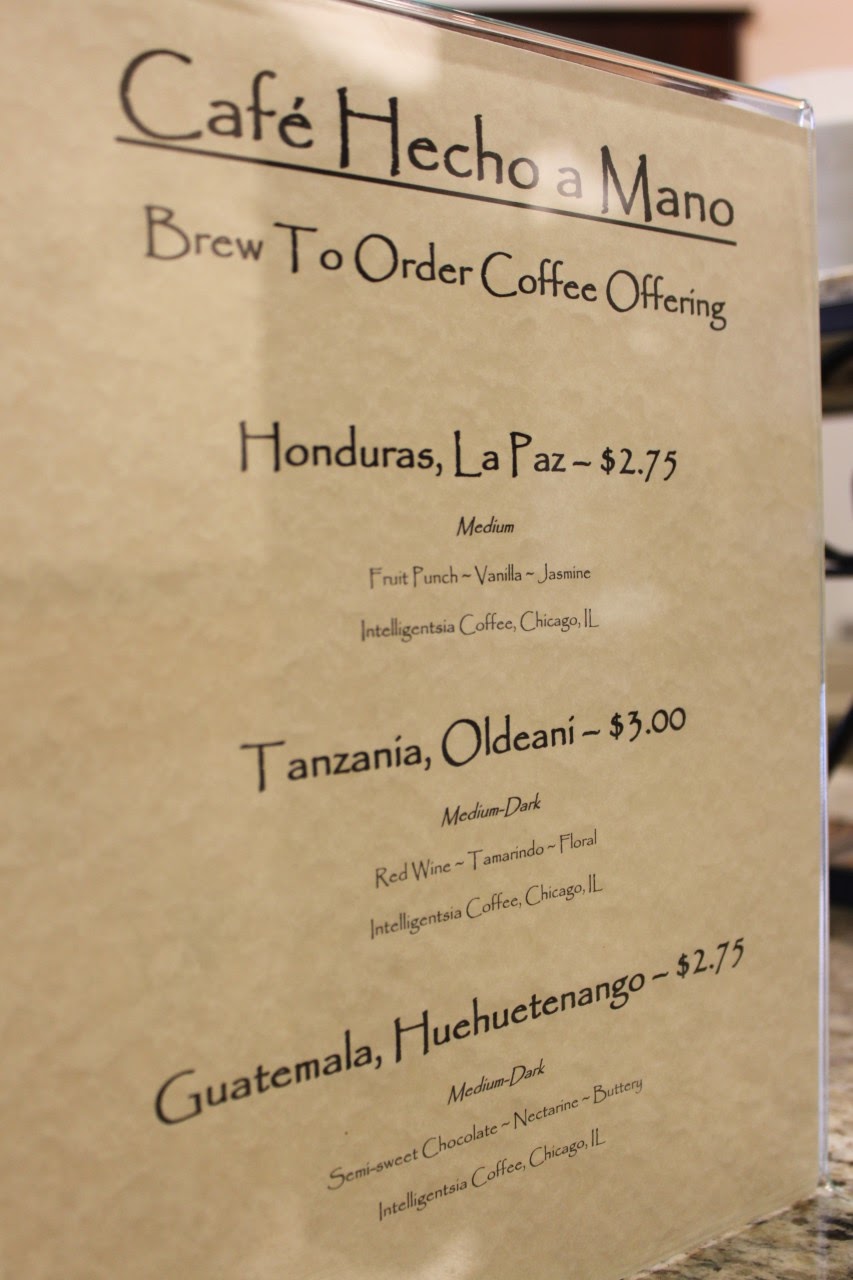 Café Hecho a Mano
Brew To Order Coffee Offering
Honduras, La Paz ~ $2.75
Medium
Fruit Punch ~ Vanilla ~ Jasmine
Intelligentsia Coffee, Chicago, IL
Tanzania, Oldeani ~ $3.00
Medium-Dark
Red Wine ~ Tamarindo ~ Floral
Intelligentsia Coffee, Chicago, IL
Guatemala, Huehuetenango ~ $2.75
Medium-Dark
Semi-sweet Chocolate ~ Nectarine ~ Buttery
Intelligentsia Coffee, Chicago, IL